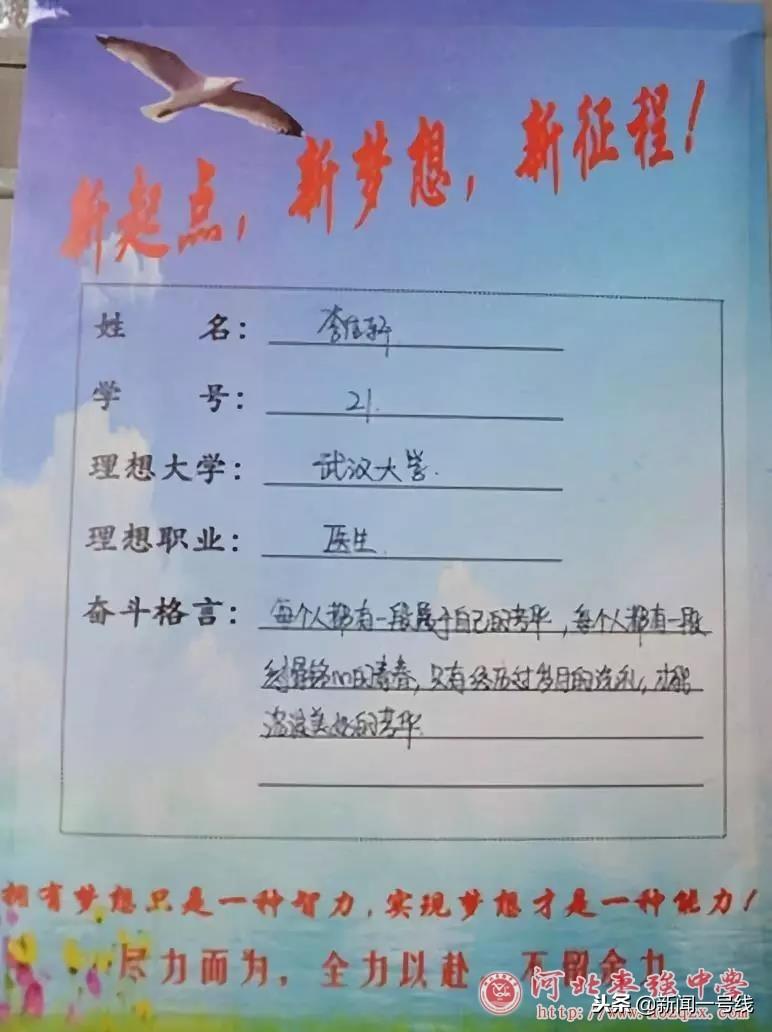 新起点，新梦想，新征程！
姓 名：李佳轩
学 号：21.
理想大学：武汉大学.
理想职业：医生.
奋斗格言：每个人都有一段属于自己的芳华，每个人都有一段
刻骨铭心的青春，只有经历过岁月的洗礼，才能
沉淀美好的芳华.
拥有梦想只是一种智力，实现梦想才是一种能力！
尽力而为，全力以赴 不留余力
河北枣强中学
http://www.
头条@新闻一号线